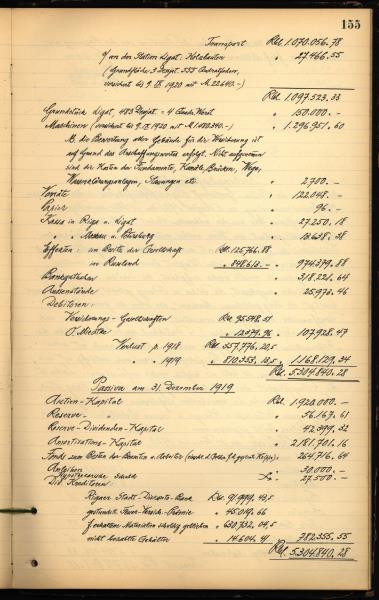 155
Transport Rbl. 1.070.056.78
f/ an der Station Ligat: Holzbauten " 27.466.55
(Grundfläche 3 Desjat. 555
versichert bis 9. IX 1920 mit M. 22.640.-)
Rbl. 1.097.523.33
Grundstück Ligat, 483 Desjat. = 4 Werst " 150.000.-
Maschinen (versichert bis 9. IX 1920 mit M. " 1.296.951.60
NB. die Bewertung aller Gebäude für die Versicherung ist
auf Grund des Anschaffungswertes erfolgt. Nicht aufgenommen
sind die Kosten der Fundamente, Kanäle, Brücken, Wege,
etc " 2700.-
Vorräte " 122.048.-
Papier " 96.-
Kassa in Riga u. Ligat " 27.250.18
" " Moskau u. Petersburg " 13.638.38
Effecten: im Besitz der Gesellschaft Rbl. 125.766.88
in Russland " 848.613.- " 974.379.88
" 318.221.64
Aussenstände " 25.973.46
Debitoren:
Versicherungs-Gesellschaften Rbl. 95.548.51
" 12.379.96 " 107.928.47
Verlust p. 1918 Rbl. 357.776,20,5
" 1919 " 810.353,13,5 1.168.129.34
Rbl. 5.304.840.28
Passiva am 31. Dezember 1919
Actien-Kapital Rbl. 1.920.000.-
Reserve- " " 56.167.61
Reserve-Dividenden-Kapital " 42.399.32
Amortisations-Kapital " 2.181.701.16
Fonds zum Besten der Beamten u. Arbeiter " 264.716.64
Anleihen 30.000.-
Hypothecarische Schuld " 27.500.-
Div. Kreditoren:
Rigaer Stadt-Disconto-Bank Rbl. 91.999.43,5
gestundete Feuer-Versich.-Prämie " 45.019.66
f. erhaltene Materialien schuldig geblieben " 630.732.04,5
nicht bezahlte Gehälter " 14.604.41 782.355.55
Rbl. 5.304.840.28